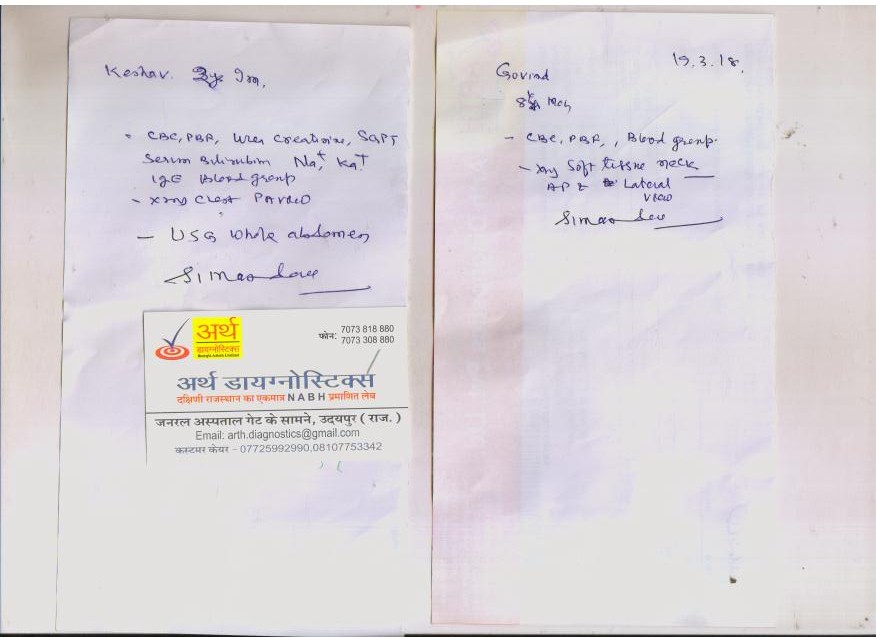 Keshav. 2yr 9m,
- CBC, PBF, Urea Creatinine, SGPT
Serum Bilirubim Na+, Ka+
IgE Blood group
- xray Chest PA view
- USG whole abdomen
अर्थ
डायग्नोस्टिक्स
फोन: 7073 818 880
7073 308 880
अर्थ डायग्नोस्टिक्स
दक्षिणी राजस्थान का एकमात्र NABH प्रमाणित लेब
जनरल अस्पताल गेट के सामने, उदयपुर ( राज. )
Email: arth.diagnostics@gmail.com
कस्टमर केयर - 07725992990,08107753342
19.3.18.
Govind
- CBC, PBF, , Blood group.
- xray Soft tissue neck
AP & Lateral
view